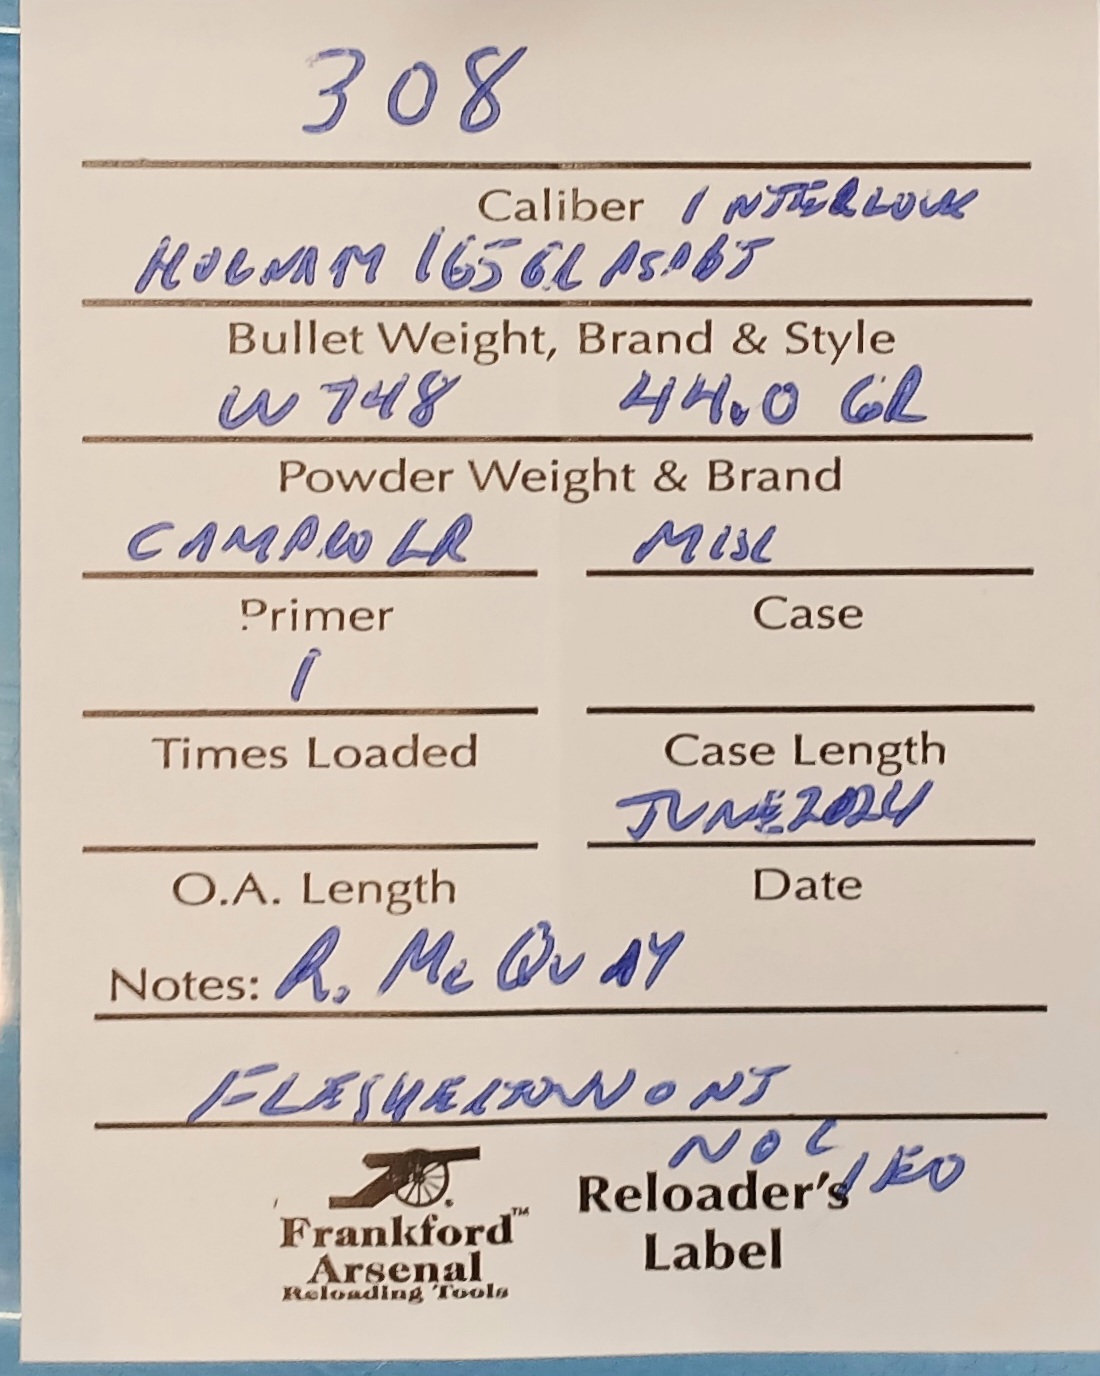 308
Caliber INTERLOCK
165 GR
Bullet Weight, Brand & Style
W748 44.0 GR
Powder Weight & Brand
LR MISC
Primer Case
1
Times Loaded Case Length
JUNE 2024
O.A. Length Date
Notes: R. McQUAY
FLESHERTON ONT
N0C 1E0
Frankford™ Reloader's
Arsenal Label
Reloading Tools